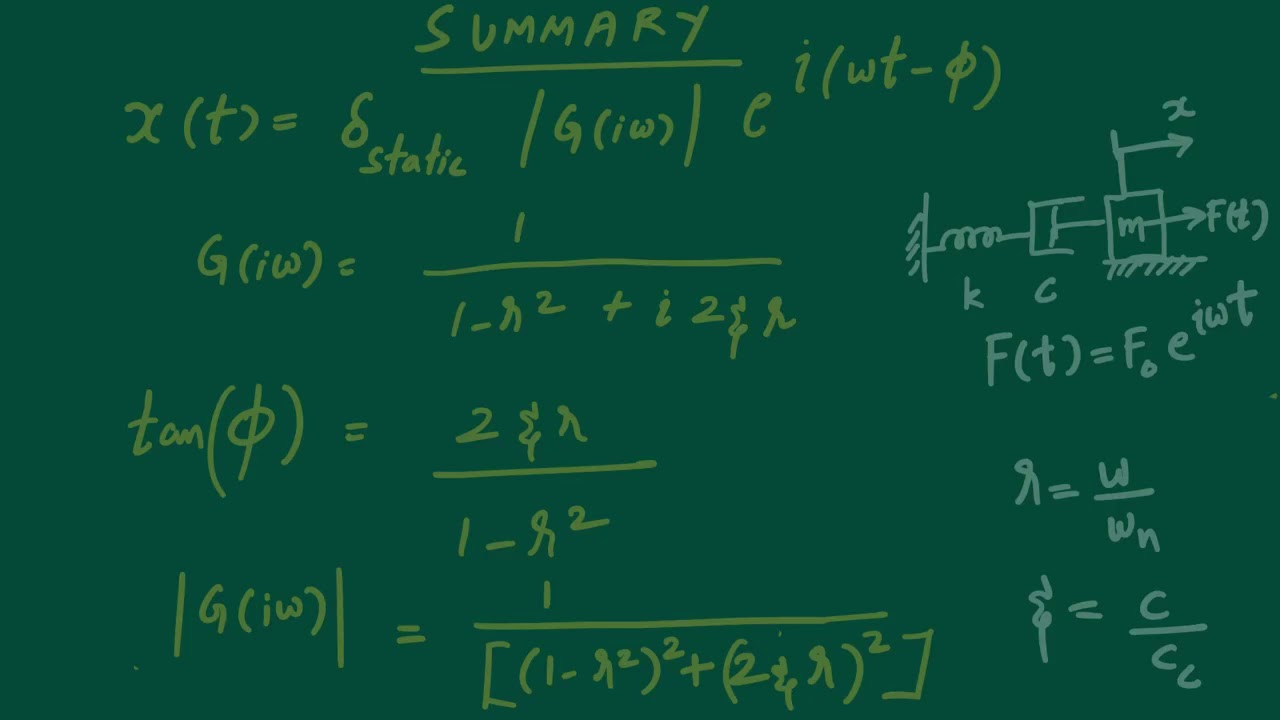 SUMMARY
x(t) = δ_static |G(iω)| e^{i(ωt-ϕ)}
G(iω) = 1 / (1-r² + i2ξr)
tan(ϕ) = 2ξr / (1-r²)
|G(iω)| = 1 / [(1-r²)²+(2ξr)²]
x
m F(t)
k c
F(t) = F₀ e^{iωt}
r = ω/ω_n
ξ = c/c_c